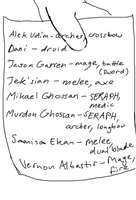 Alek Udim-archer, crossbow
Dani - druid
Jason Garren - mage, battle
(sword)
Jek'sian - melee, axe
Mikael Ghossan - SERAPH,
medic
Murdon Ghossan - SERAPH,
archer, longbow
Saanisa Ekan - melee,
dual blade
Vernon Albastir - Mage,
fire